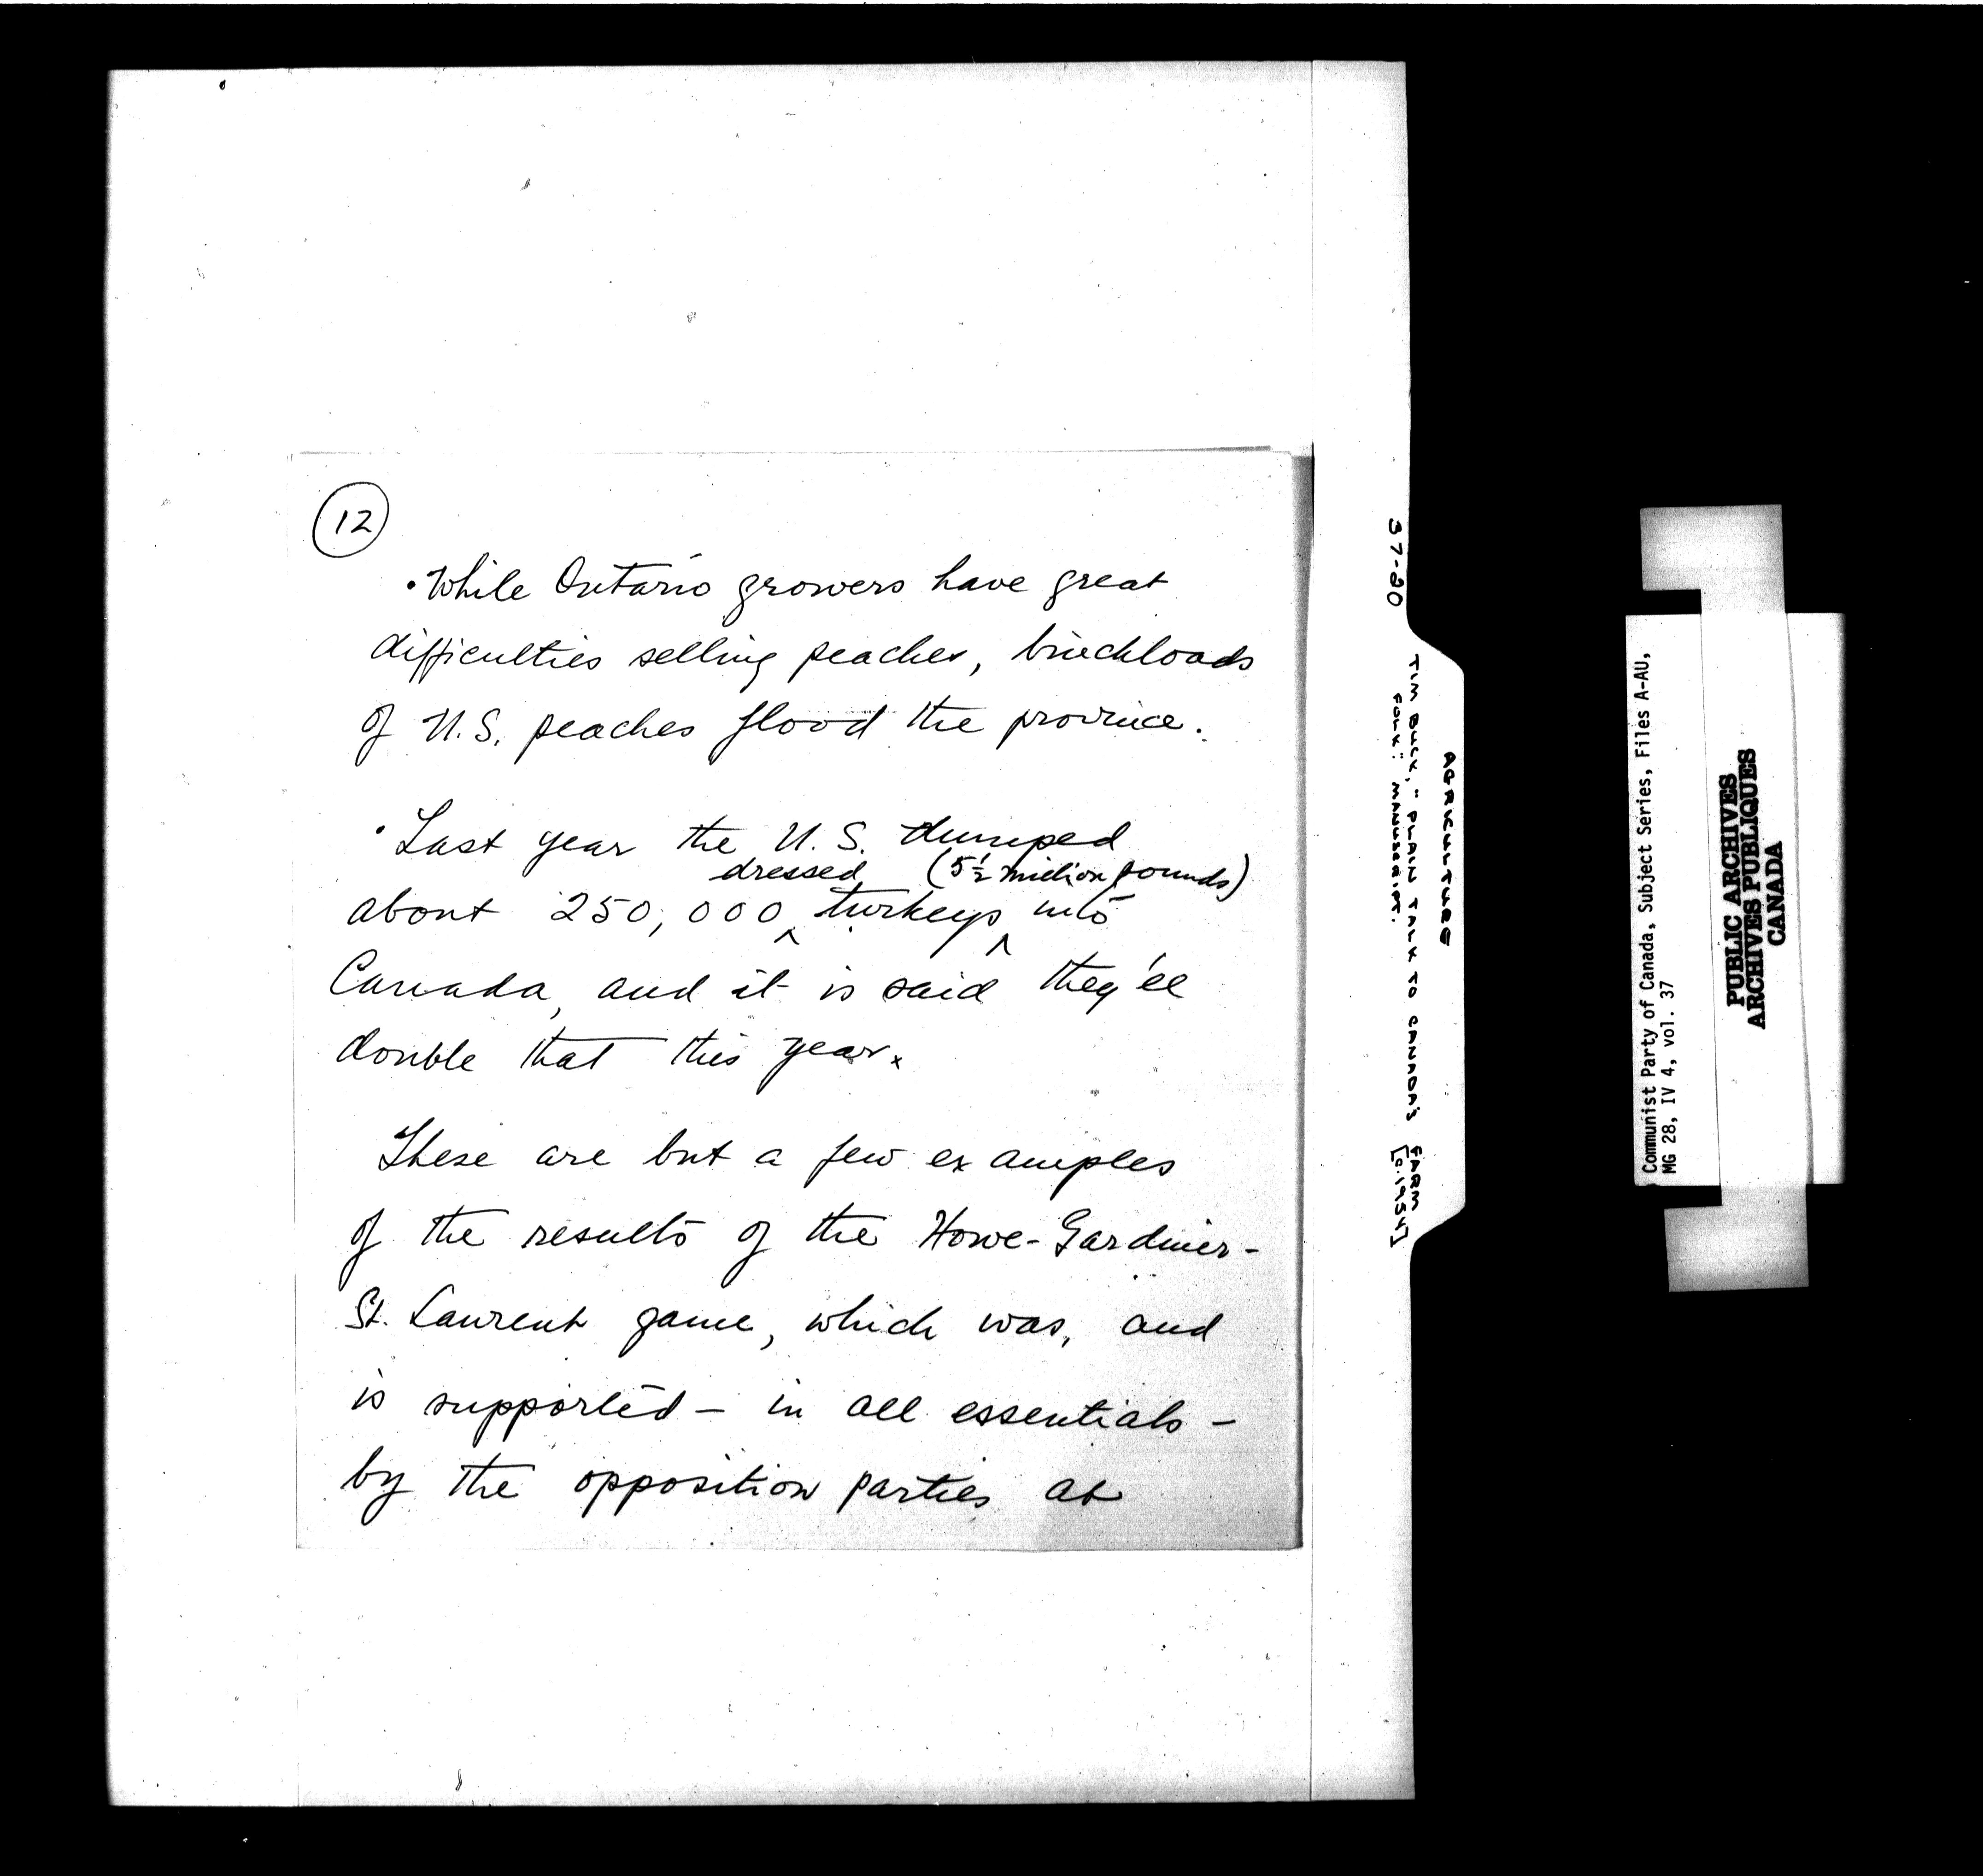 12
• While Ontario growers have great
difficulties selling peaches, truckloads
of U.S. peaches flood the province.
• Last year the U.S. dumped
dressed (5½ million pounds)
about 250,000 ^ turkeys ^ into
Canada, and it is said they'll
double that this year.
These are but a few examples
of the results of the Howe-Gardiner-
St. Laurent game, which was, and
is supported – in all essentials –
by the opposition parties at
37-20
AGRICULTURE
TIM BUCK, "PLAIN TALK TO CANADA'S FARM
FOLK": MANUSCRIPT. [c.1954]
Communist Party of Canada, Subject Series, Files A-AU,
MG 28, IV 4, vol. 37
PUBLIC ARCHIVES
ARCHIVES PUBLIQUES
CANADA